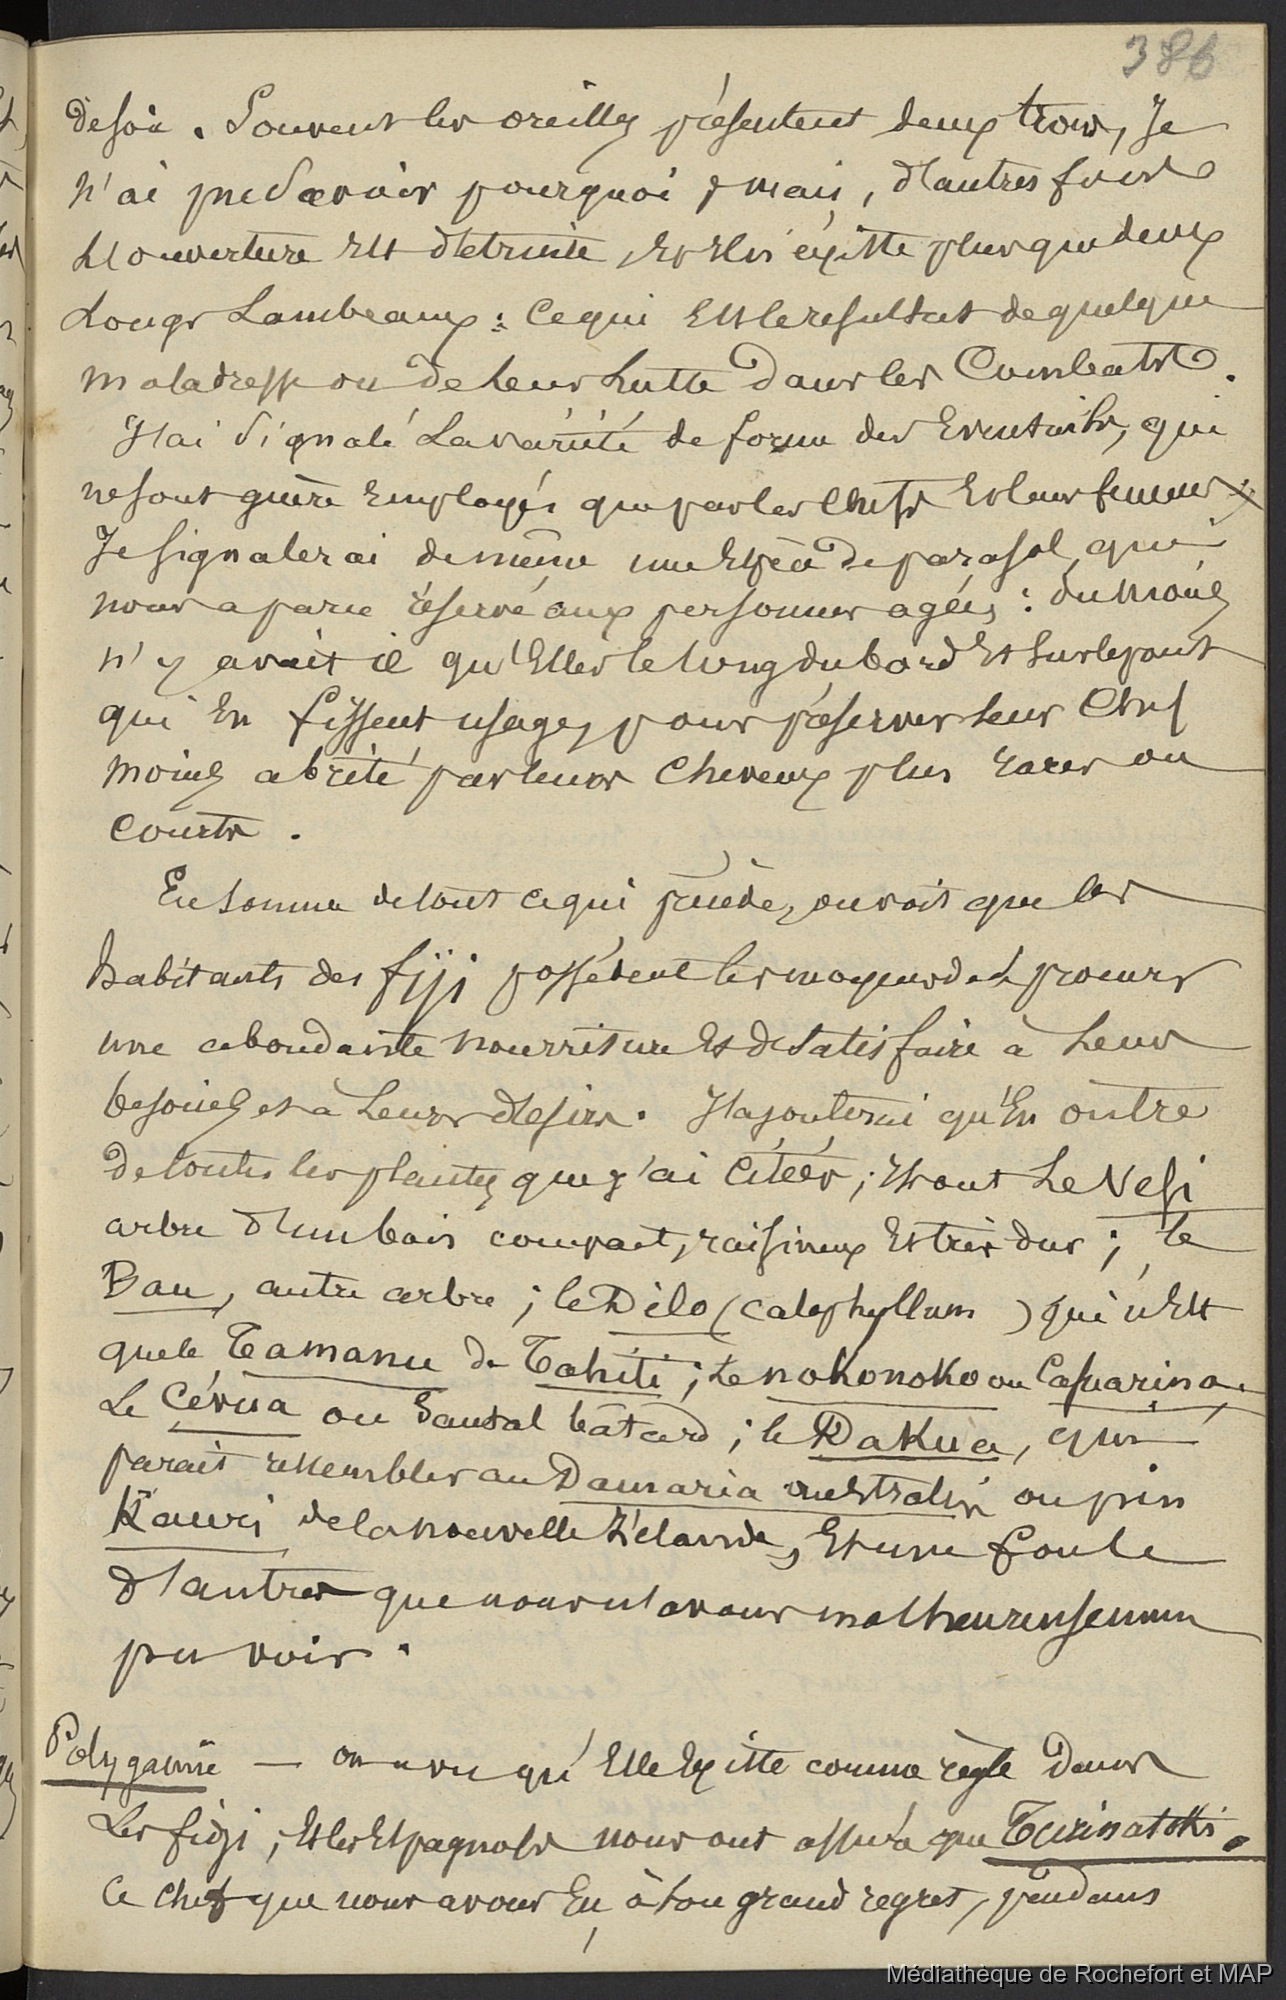 386
de soi. Souvent les oreilles présentent deux trous, Je
n'ai pu savoir pourquoi, mais, d'autres fois
L'ouverture Est détruite, Et il n'existe plus que deux
Longs Lambeaux : Ce qui Est le resultat de quelque
maladresse ou de leur lutte dans les Combats.
J'ai signalé La variété de forme des Eventails, qui
ne sont guère Employés que par les Chefs Et leurs femmes ;
Je signalerai de même une Espèce de parasol, qui
nous a paru réservé aux personnes agées : du moins
n'y avait il qu'Elles le long du bord Et sur le pont
qui En fissent usage, pour préserver leur Chef
moins abrité par leurs Cheveux plus rares ou
Courts.
En somme de tout ce qui précède, on voit que les
habitants des fiji possèdent les moyens de se procurer
une abondante nourriture Et de satisfaire à Leurs
besoins et à Leurs désirs. J'ajouterai qu'En outre
De toutes les plantes que j'ai Citées, ils ont Le Vesi
arbre d'un bois compact, raisineux Et très dur ; le
Bau, autre arbre ; le Dilo (calophyllum) qui n'Est
que le Tamanu de Tahiti ; Le nokonoko ou Casuarina,
Le Cévua ou Santal bâtard ; le Dakua, qui
parait ressembler au Damaria australis ou pin
Kauri de la nouvelle Zélande, Et une foule
d'autres que nous n'avons malheureusement
pu voir.
Polygamie — on a vu qu'Elle Existe comme règle Dans
Les fidji, Et les Espagnols nous ont assuré que
Ce chef que nous avons Eu, à son grand regret, pendant
Médiathèque de Rochefort et MAP